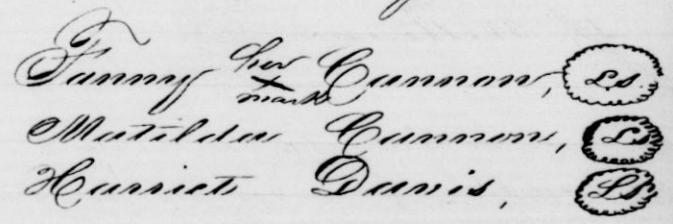 Fanny her X mark Cannon, L.S.
Matilda Cannon, LS
Harriet Davis, LS